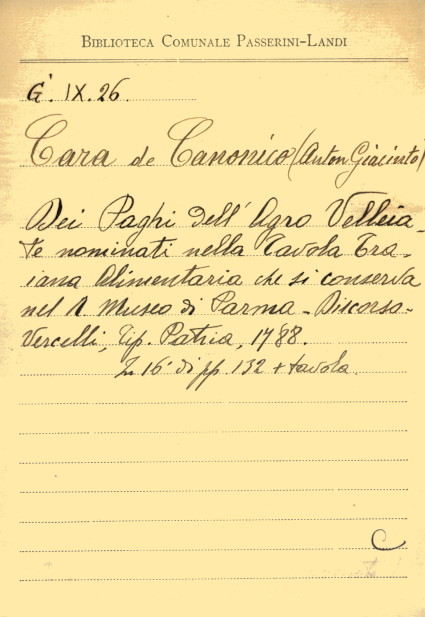 BIBLIOTECA COMUNALE PASSERINI-LANDI
G. IX. 26.
Cara de Canonico (Anton Giacinto)
Dei Paghi dell' Agro Velleia-
te nominati nella Tavola Tra-
iana Alimentaria che si conserva
nel R Museo di Parma - Discorso -
Vercelli, Tip. Patria, 1788.
In 16° di pp. 132 + tavola.
C